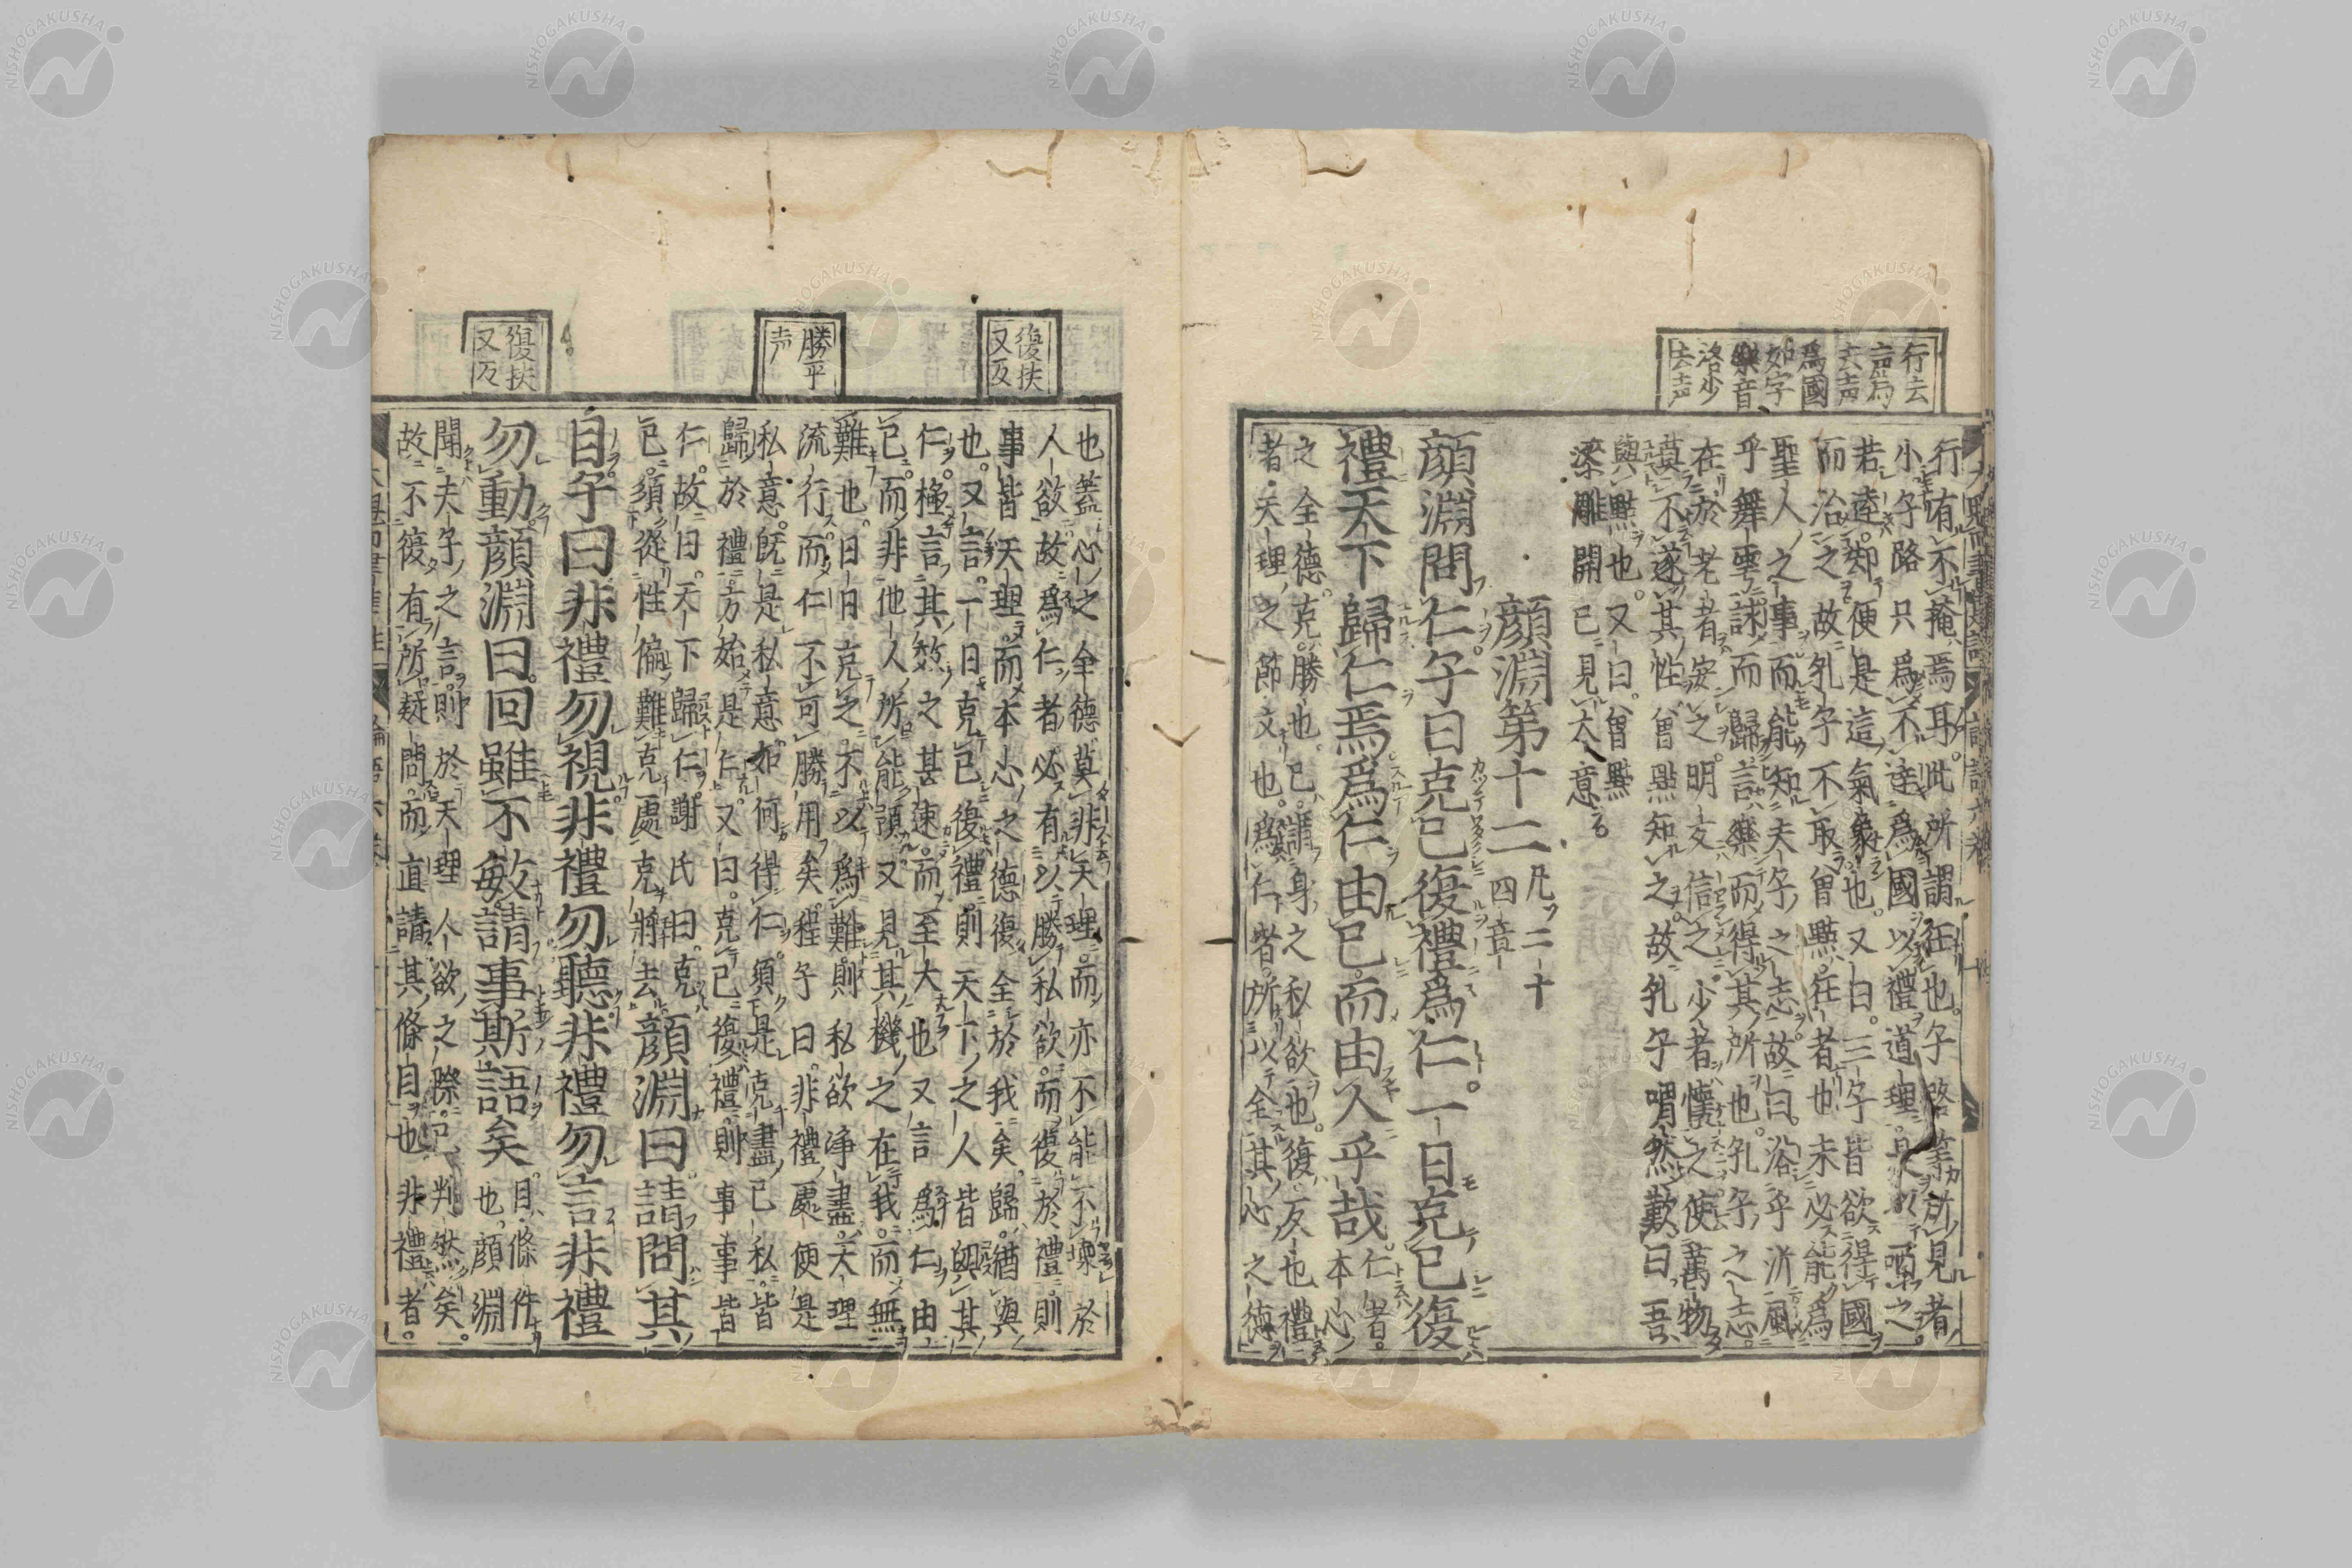 行去
去声
爲國
如字
樂音
洛少
去声
行有不掩焉耳此所謂狂也子路等所見者
小子路只爲不達爲國以禮道理是以哂之
若達却便是這氣象也又曰三子皆欲得國
而治之故孔子不取曽點狂者也未必能爲
聖人之事而能知夫子之志故曰浴乎沂風
乎舞雩詠而歸言樂而得其所也孔子之志
在於老者安之朋友信之少者懷之使萬物
莫不遂其性曽點知之故孔子喟然歎曰吾
與點也又曰曽點
漆雕開已見大意
顔淵第十二
凡二十
四章
顔淵問仁子曰克己復禮爲仁一日克己復
禮天下歸仁焉爲仁由己而由人乎哉
仁者
本心
之全德克勝也己謂身之私欲也復反也禮
者天理之節文也爲仁者所以全其心之德
復扶
又反
勝平
声
復扶
又反
也蓋心之全德莫非天理而亦不能不壞於
人欲故爲仁者必有以勝私欲而復於禮則
事皆天理而本心之德復全於我矣歸猶與
也又言一日克己復禮則天下之人皆與其
仁極言其效之甚速而至大也又言爲仁由
已而非他人所能預又見其機之在我而無
難也日日克之不以爲難則私欲浄盡天理
流行而仁不可勝用矣程子曰非禮處便是
私意既是私意如何得仁須是克盡己私皆
歸於禮方始是仁又曰克己復禮則事事皆
仁故曰天下歸仁謝氏曰克
己須從性偏難克處克將去
顔淵曰請問其
目子曰非禮勿視非禮勿聽非禮勿言非禮
勿動顔淵曰回雖不敏請事斯語矣
目條件
也顔淵
聞夫子之言則於天理人欲之際已判然矣
故不復有所疑問而直請其條目也非禮者